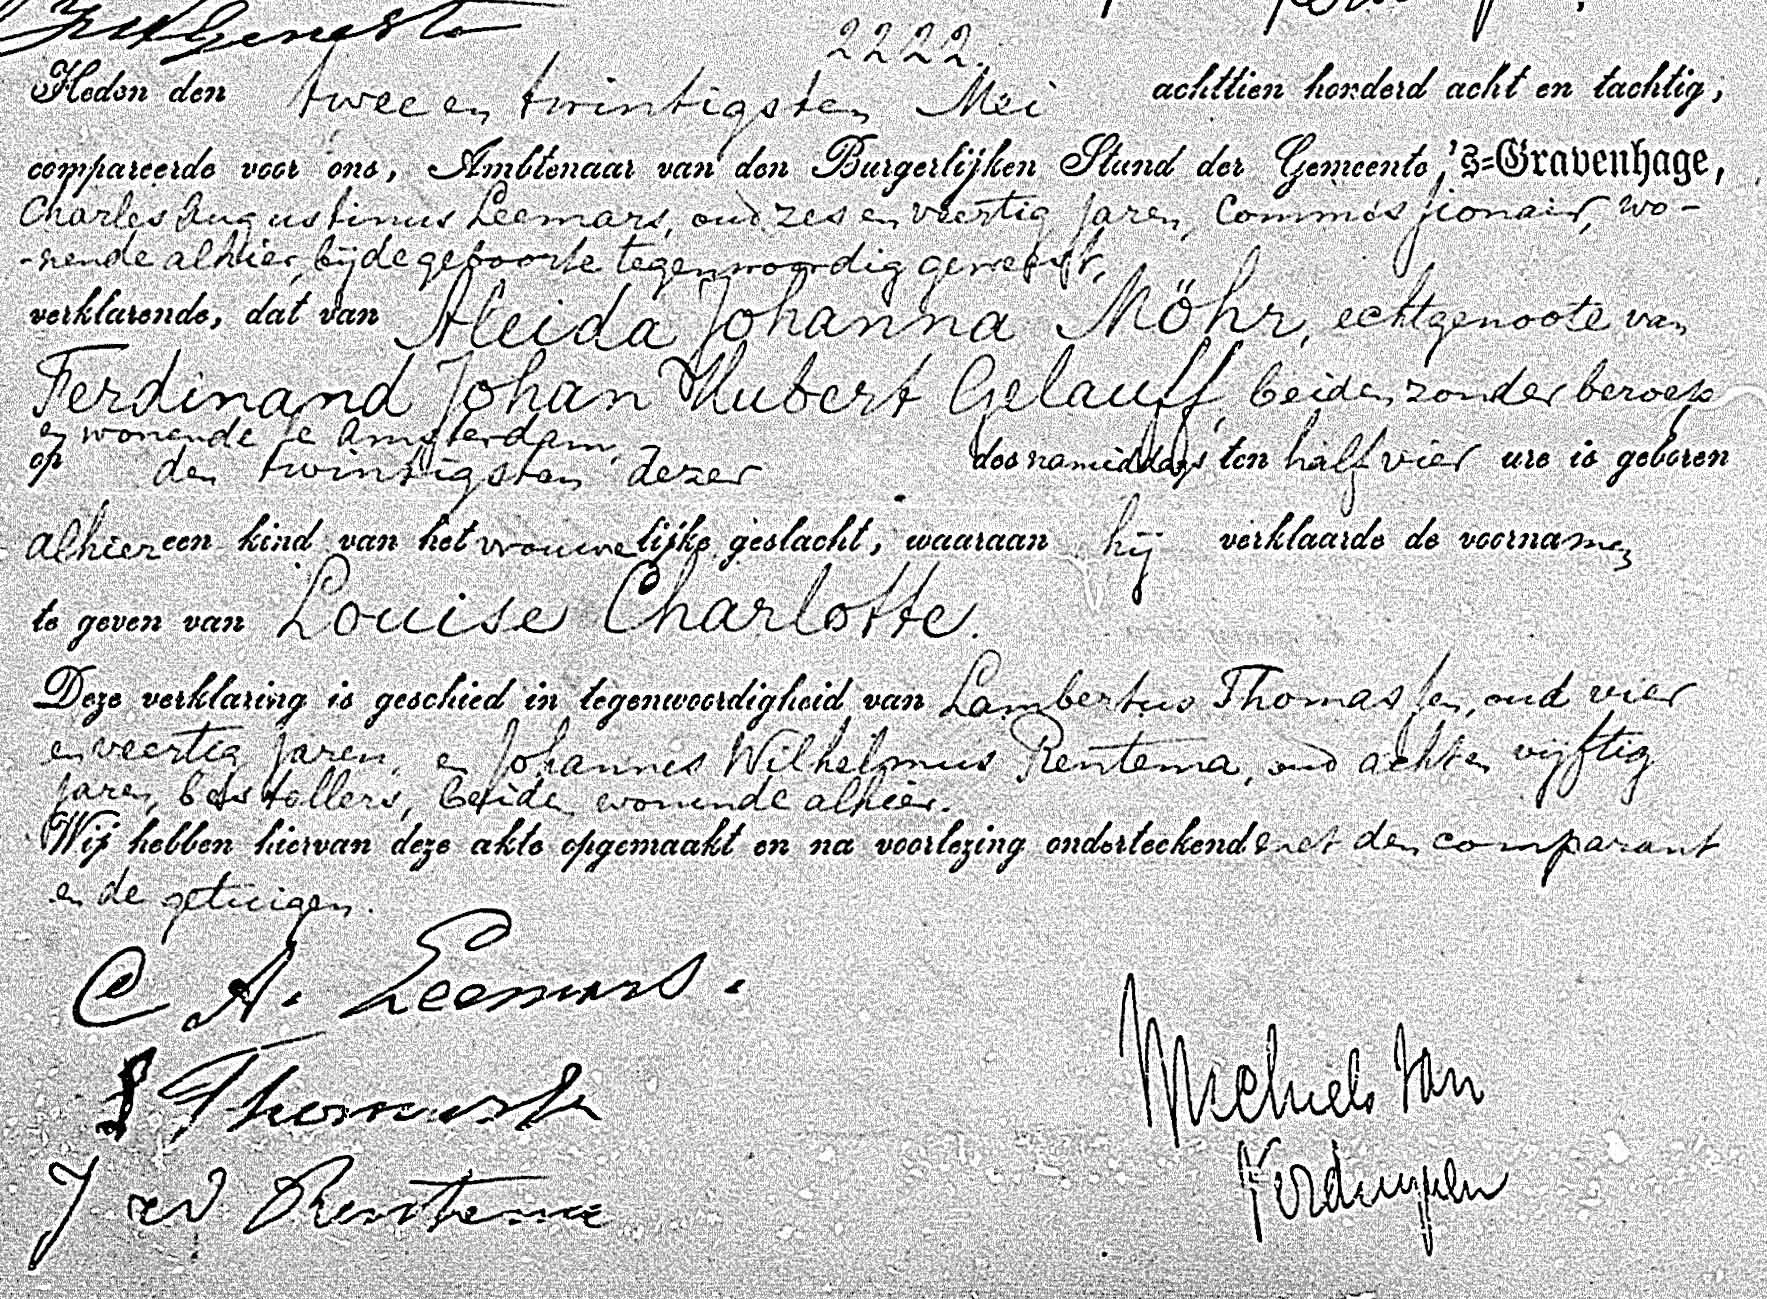 2222.
Heden den twee en twintigsten Mei achttien honderd acht en tachtig,
compareerde voor ons, Ambtenaar van den Burgerlijken Stand der Gemeente 's-Gravenhage,
Charles Augustinus Leemans, oud zes en veertig jaren, commissionair, wo-
-nende alhier, bij de geboorte tegenwoordig geweest,
verklarende, dat van Aleida Johanna Möhr, echtgenoote van
Ferdinand Johan Hubert Gelauff, beiden zonder beroep
en wonende te Amsterdam,
op den twintigsten dezer des namiddags ten half vier ure is geboren
alhier een kind van het vrouwelijke geslacht, waaraan hij verklaarde de voornamen
te geven van Louise Charlotte.
Deze verklaring is geschied in tegenwoordigheid van Lambertus Thomassen, oud vier
en veertig jaren, en Johannes Wilhelmus Rentema, oud acht en vijftig
jaren, bestellers, beiden wonende alhier.
Wij hebben hiervan deze akte opgemaakt en na voorlezing onderteekend met den comparant
en de getuigen.
C A. Leemans.
L Thomassen
J W Rentema
Michiels van
Verduynen